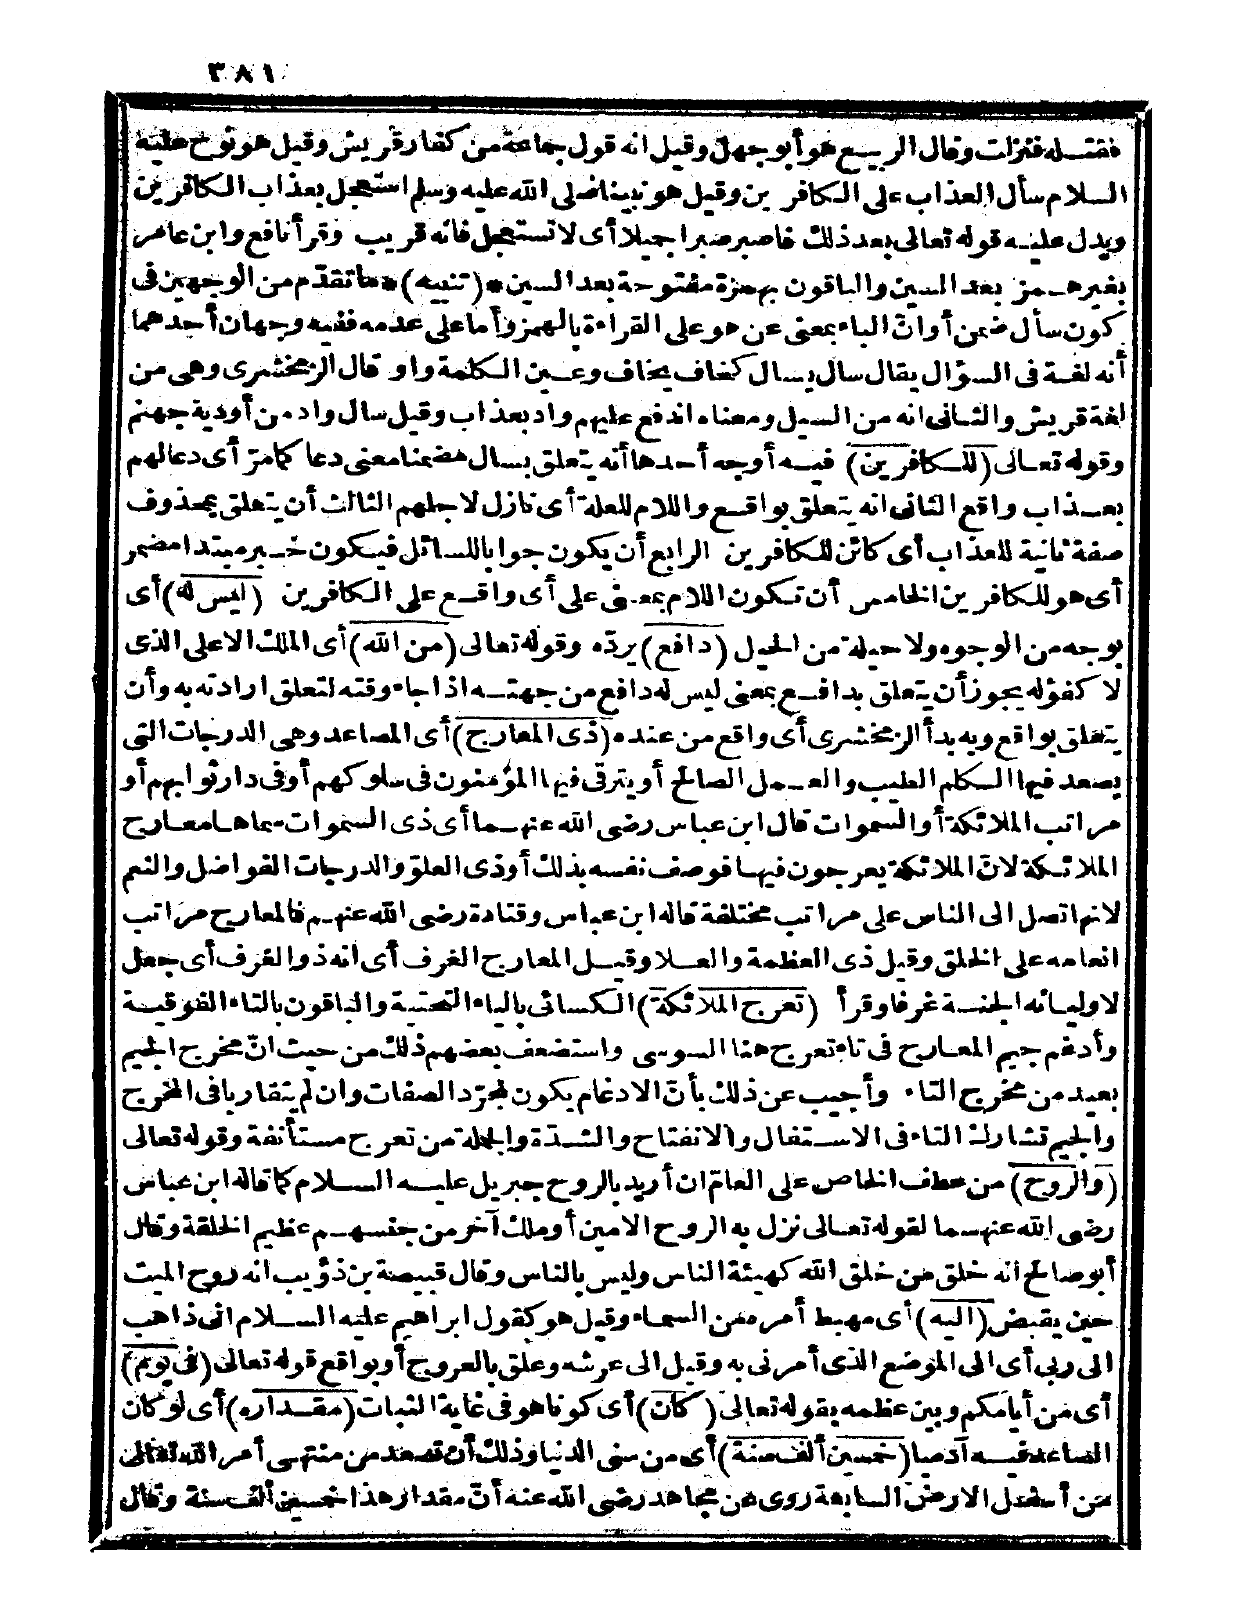 ٣٨١
فقتله فنزلت وقال الربيع هو أبو جهل وقيل انه قول جماعة من كفار قريش وقيل هو نوح عليه
السلام سأل العذاب على الكافرين وقيل هو نبينا صلى الله عليه وسلم استعجل بعذاب الكافرين
ويدل عليه قوله تعالى بعد ذلك فاصبر صبرا جميلا أى لا تستعجل فانه قريب وقرأ نافع وابن عامر
بغير همز بعد السين والباقون بهمزة مفتوحة بعد السين *(تنبيه)* ما تقدّم من الوجهين فى
كون سأل ضمن أو انّ الباء بمعنى عن هو على القراءة بالهمز وأما على عدمه ففيه وجهان أحدهما
أنه لغة فى السؤال يقال سال يسال كخاف يخاف وعين الكلمة واو قال الزمخشرى وهى من
لغة قريش والثانى انه من السيل ومعناه اندفع عليهم واد بعذاب وقيل سال واد من أودية جهنم
وقوله تعالى (للكافرين) فيه أوجه أحدها أنه يتعلق بسال مضمنا معنى دعا كما مرّ أى دعا لهم
بعذاب واقع الثانى انه يتعلق بواقع واللام للعلة أى نازل لاجلهم الثالث أن يتعلق بمحذوف
صفة ثانية للعذاب أى كائن للكافرين الرابع أن يكون جوابا للسائل فيكون خبر مبتدا مضمر
أى هو للكافرين الخامس أن تكون اللام بمعنى على أى واقع على الكافرين (ليس له) أى
بوجه من الوجوه ولا حيلة من الحيل (دافع) يردّه وقوله تعالى (من الله) أى الملك الاعلى الذى
لا كفؤ له يجوز أن يتعلق بدافع بمعنى ليس له دافع من جهته اذا جاء وقته لتعلق ارادته به وأن
يتعلق بواقع وبه بدأ الزمخشرى أى واقع من عنده (ذى المعارج) أى المصاعد وهى الدرجات التى
يصعد فيها الكلم الطيب والعمل الصالح أو يترقى فيها المؤمنون فى سلوكهم أو فى دار ثوابهم أو
مراتب الملائكة أو السموات قال ابن عباس رضى الله عنهما أى ذى السموات سماها معارج
الملائكة لانّ الملائكة يعرجون فيها فوصف نفسه بذلك أو ذى العلوّ والدرجات الفواضل والنعم
لانها تصل الى الناس على مراتب مختلفة قاله ابن عباس وقتادة رضى الله عنهم فالمعارج مراتب
انعامه على الخلق وقيل ذى العظمة والعلا وقيل المعارج الغرف أى انه ذو الغرف أى جعل
لاوليائه الجنة غرفا وقرأ (تعرج الملائكة) الكسائى بالياء التحتية والباقون بالتاء الفوقية
وأدغم جيم المعارج فى تاء تعرج هنا السوسى واستضعف بعضهم ذلك من حيث انّ مخرج الجيم
بعيد من مخرج التاء وأجيب عن ذلك بأنّ الادغام يكون لمجرّد الصفات وان لم يتقاربا فى المخرج
والجيم تشارك التاء فى الاستفال والانفتاح والشدّة والجملة من تعرج مستأنفة وقوله تعالى
(والروح) من عطف الخاص على العامّ ان أريد بالروح جبريل عليه السلام كما قاله ابن عباس
رضى الله عنهما لقوله تعالى نزل به الروح الامين أو ملك آخر من جنسهم عظيم الخلقة وقال
أبو صالح انه خلق من خلق الله كهيئة الناس وليس بالناس وقال قبيصة بن ذؤيب انه روح الميت
حين يقبض (اليه) أى مهبط أمره من السماء وقيل هو كقول ابراهيم عليه السلام انى ذاهب
الى ربى أى الى الموضع الذى أمرنى به وقيل الى عرشه وعلق بالعروج أو بواقع قوله تعالى (فى يوم)
أى من أيامكم وبين عظمه بقوله تعالى (كان) أى كونا هو فى غاية الثبات (مقداره) أى لو كان
الصاعد فيه آدميا (خمسين ألف سنة) أى من سنى الدنيا وذلك أن تصعد من منتهى أمر الله تعالى
من أسفل الارض السابعة روى عن مجاهد رضى الله عنه أنّ مقدار هذا خمسين ألف سنة وقال